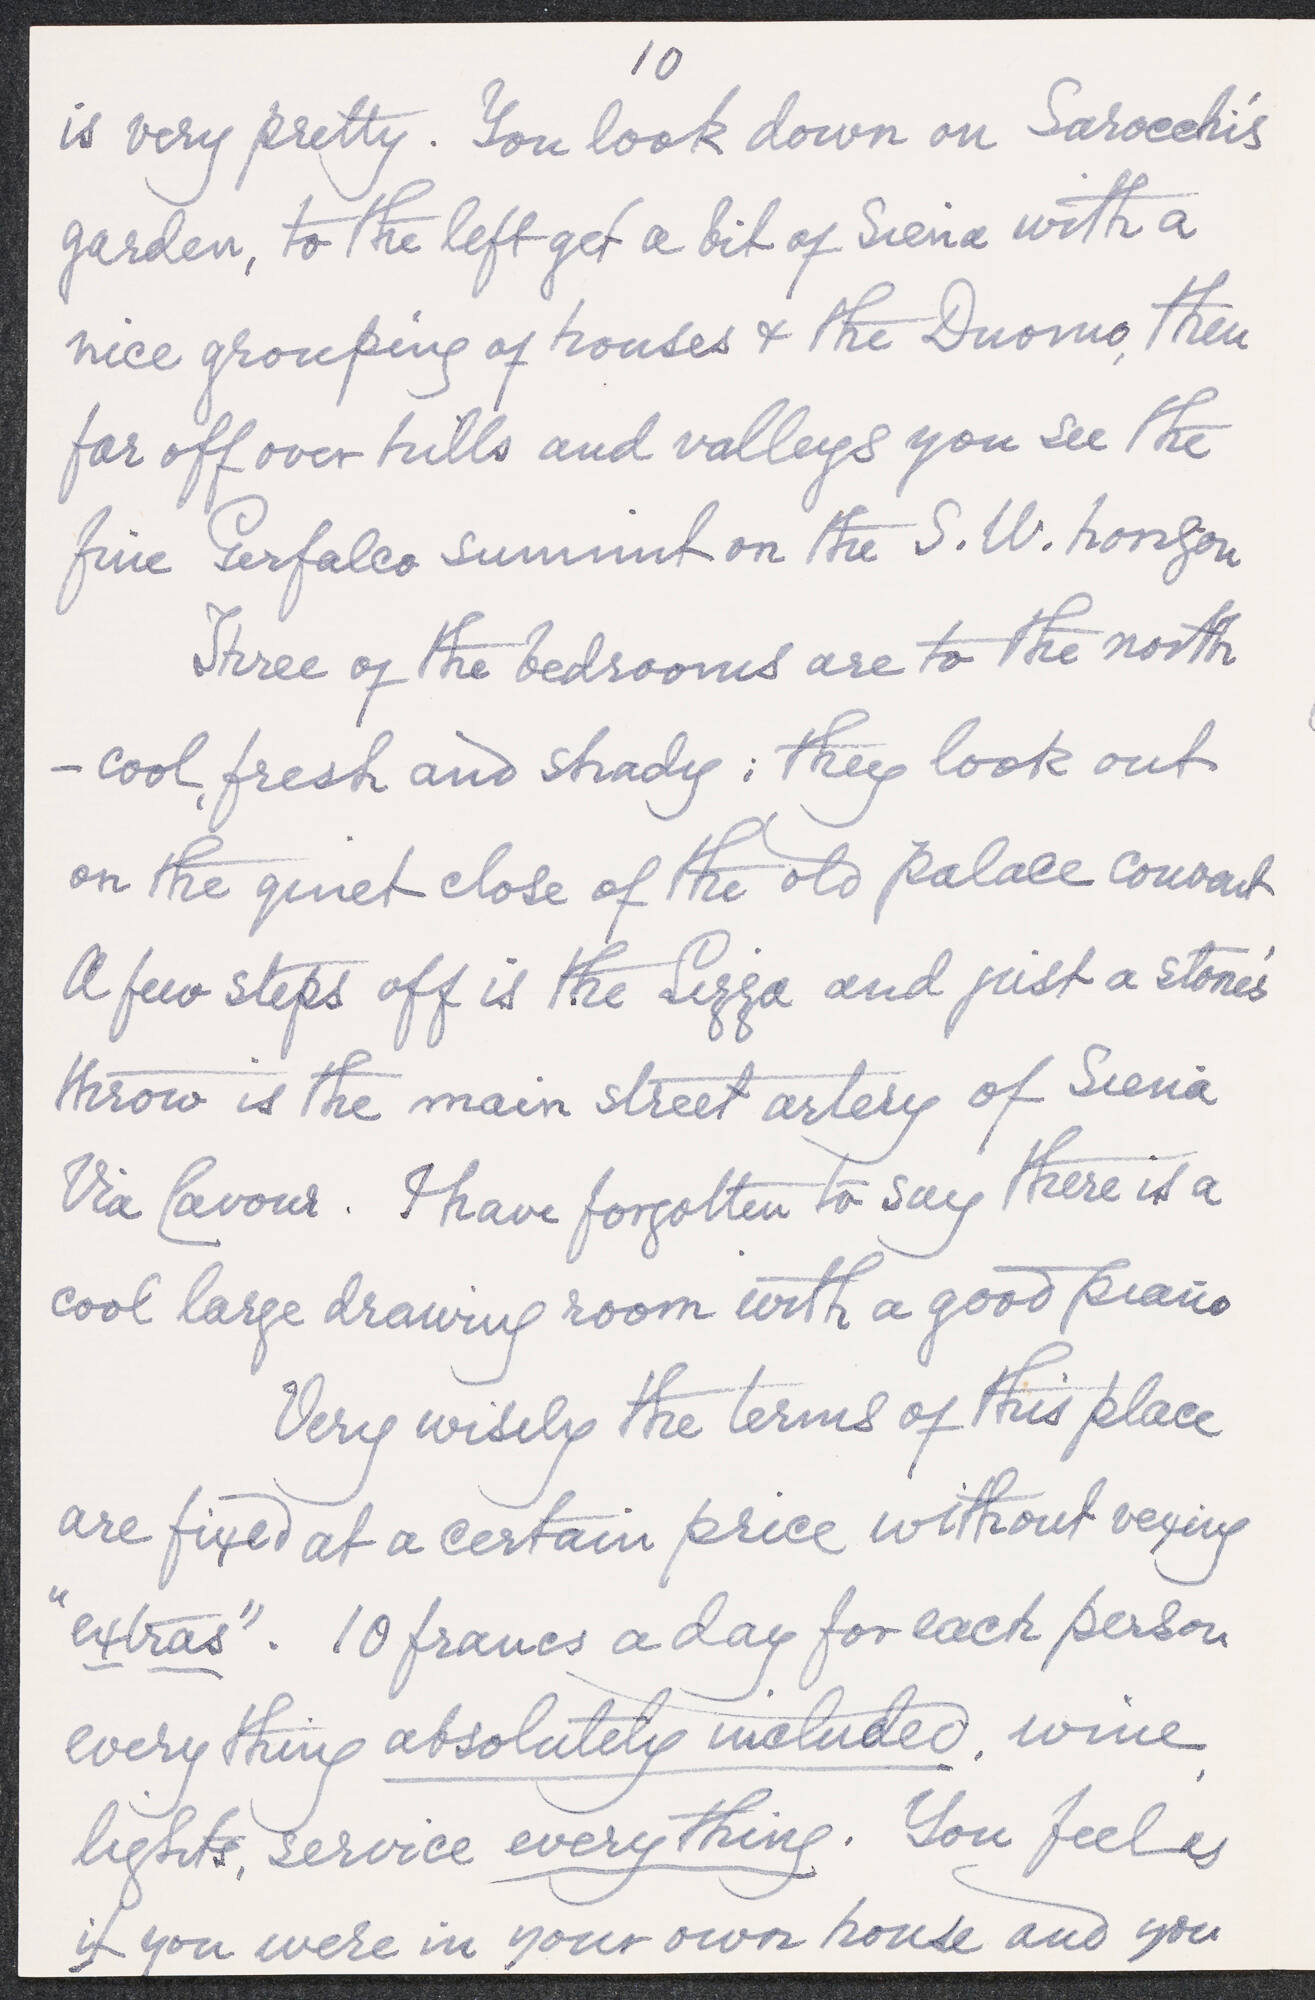 10
is very pretty. You look down on Sarocchi's
garden, to the left get a bit of Siena with a
nice grouping of houses & the Duomo, then
far off over hills and valleys you see the
fine Gerfalco summit on the S.W. horizon
Three of the bedrooms are to the north
- cool, fresh and shady; they look out
on the quiet close of the old palace convent
A few steps off is the Lizza and just a stone's
throw is the main street artery of Siena
Via Cavour. I have forgotten to say there is a
cool large drawing room with a good piano
Very wisely the terms of this place
are fixed at a certain price without vexing
"extras". 10 francs a day for each person
every thing absolutely included, wine,
lights, service every thing. You feel as
if you were in your own house and you